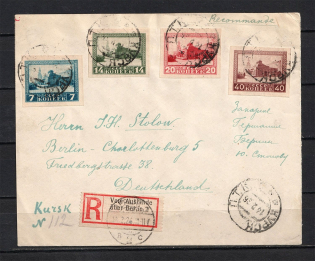 Recommandé
7 КОПЕЕК 7
14 КОПЕЕК 14
20 КОПЕЕК 20
40 КОПЕЕК 40
Заказное
Германия
Берлин
Herrn J.H. Stolow
Berlin - Charlottenburg 5
Friedbergstrasse 38.
Deutschland
R
Vom Auslande
über Berlin
Kursk
N 112
КУРСК